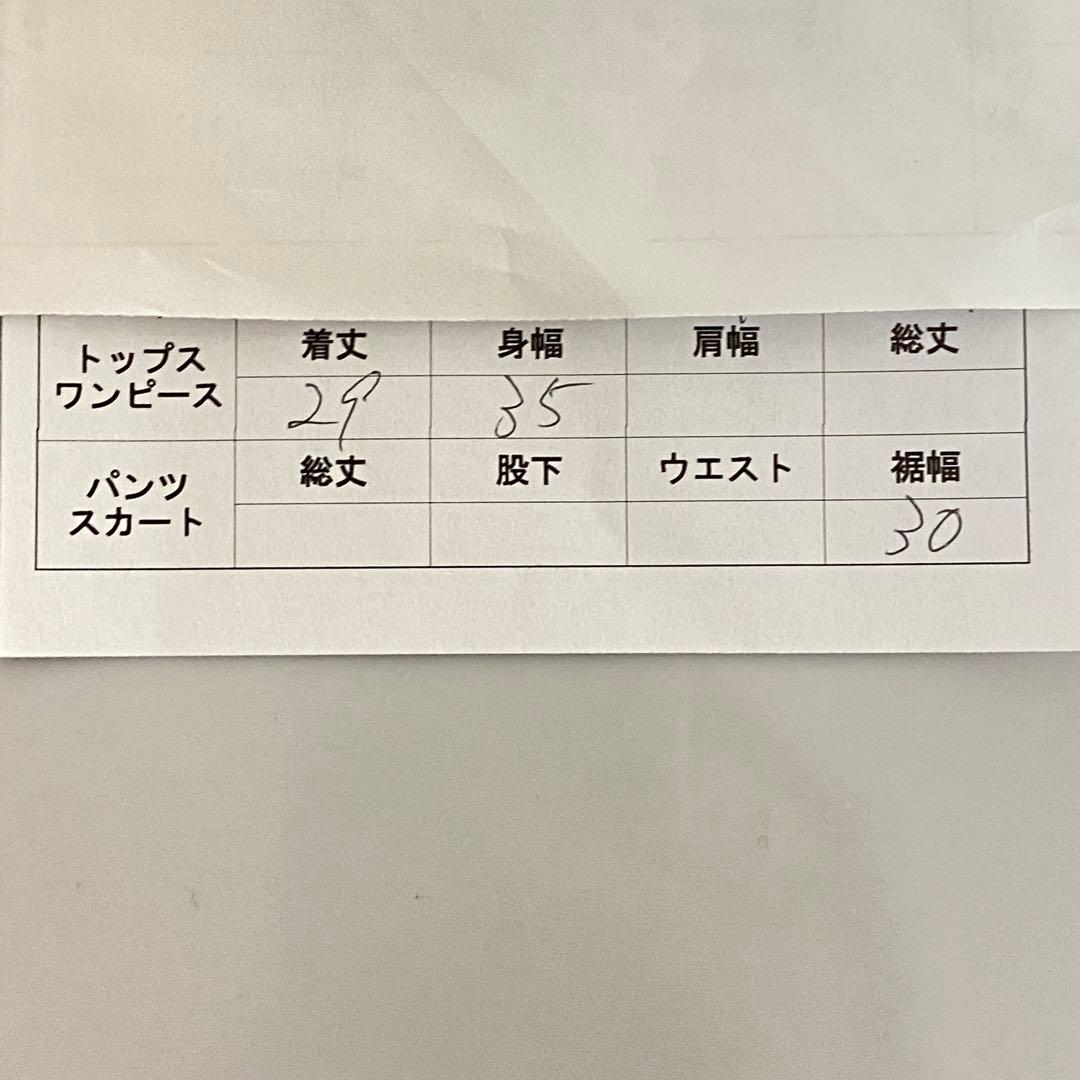 トップス
ワンピース
着丈 身幅 肩幅 総丈
29 35
パンツ
スカート
総丈 股下 ウエスト 裾幅
30